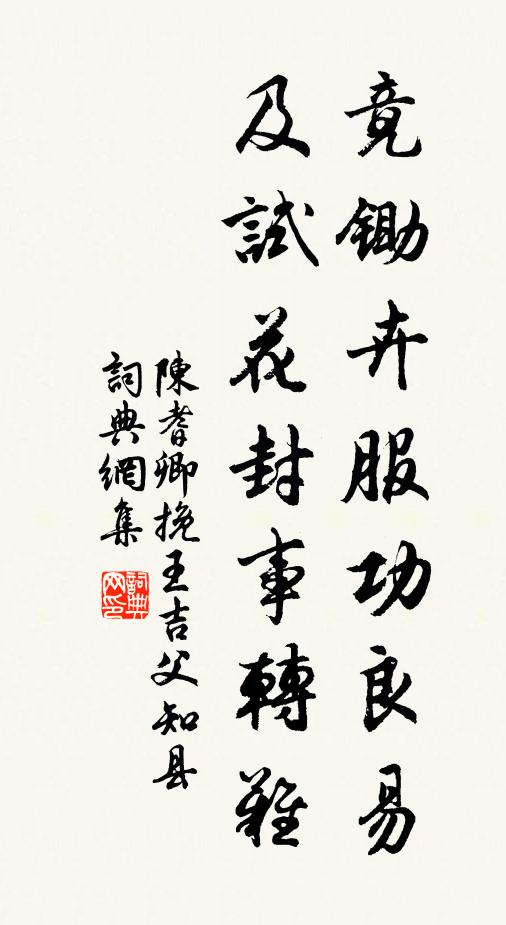 竟鋤卉服功良易
及試花封事轉難
陳耆卿挽王吉父知县
詞典網集
詞典网印